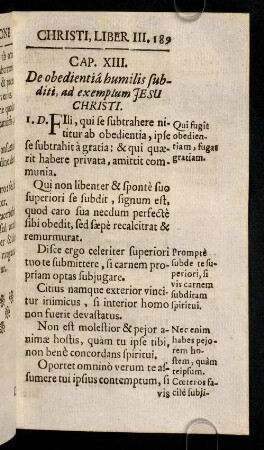 CHRISTI, LIBER III. 189
CAP. XIII.
De obedientiâ humilis sub-
diti, ad exemplum JESU
CHRISTI.
1. D. FIli, qui se subtrahere ni-
titur ab obedientia, ipse
se subtrahit à gratia: & qui quæ-
rit habere privata, amittit com-
munia.
Qui fugit
obedien-
tiam, fugat
gratiam.
Qui non libenter & spontè suo
superiori se subdit, signum est,
quod caro sua necdum perfectè
sibi obedit, sed sæpè recalcitrat &
remurmurat.
Disce ergo celeriter superiori
tuo te submittere, si carnem pro-
priam optas subjugare.
Promptè
subde te su-
periori, si
vis carnem
subdiram
spiritui.
Citius namque exterior vinci-
tur inimicus, si interior homo
non fuerit devastatus.
Non est molestior & pejor a-
nimæ hostis, quàm tu ipse tibi,
non benè concordans spiritui.
Nec enim
habes pejo-
rem ho-
stem, quàm
teipsum.
Oportet omninò verum te as-
sumere tui ipsius contemptum, si
Cœteros fa-
cilè subji-
vis